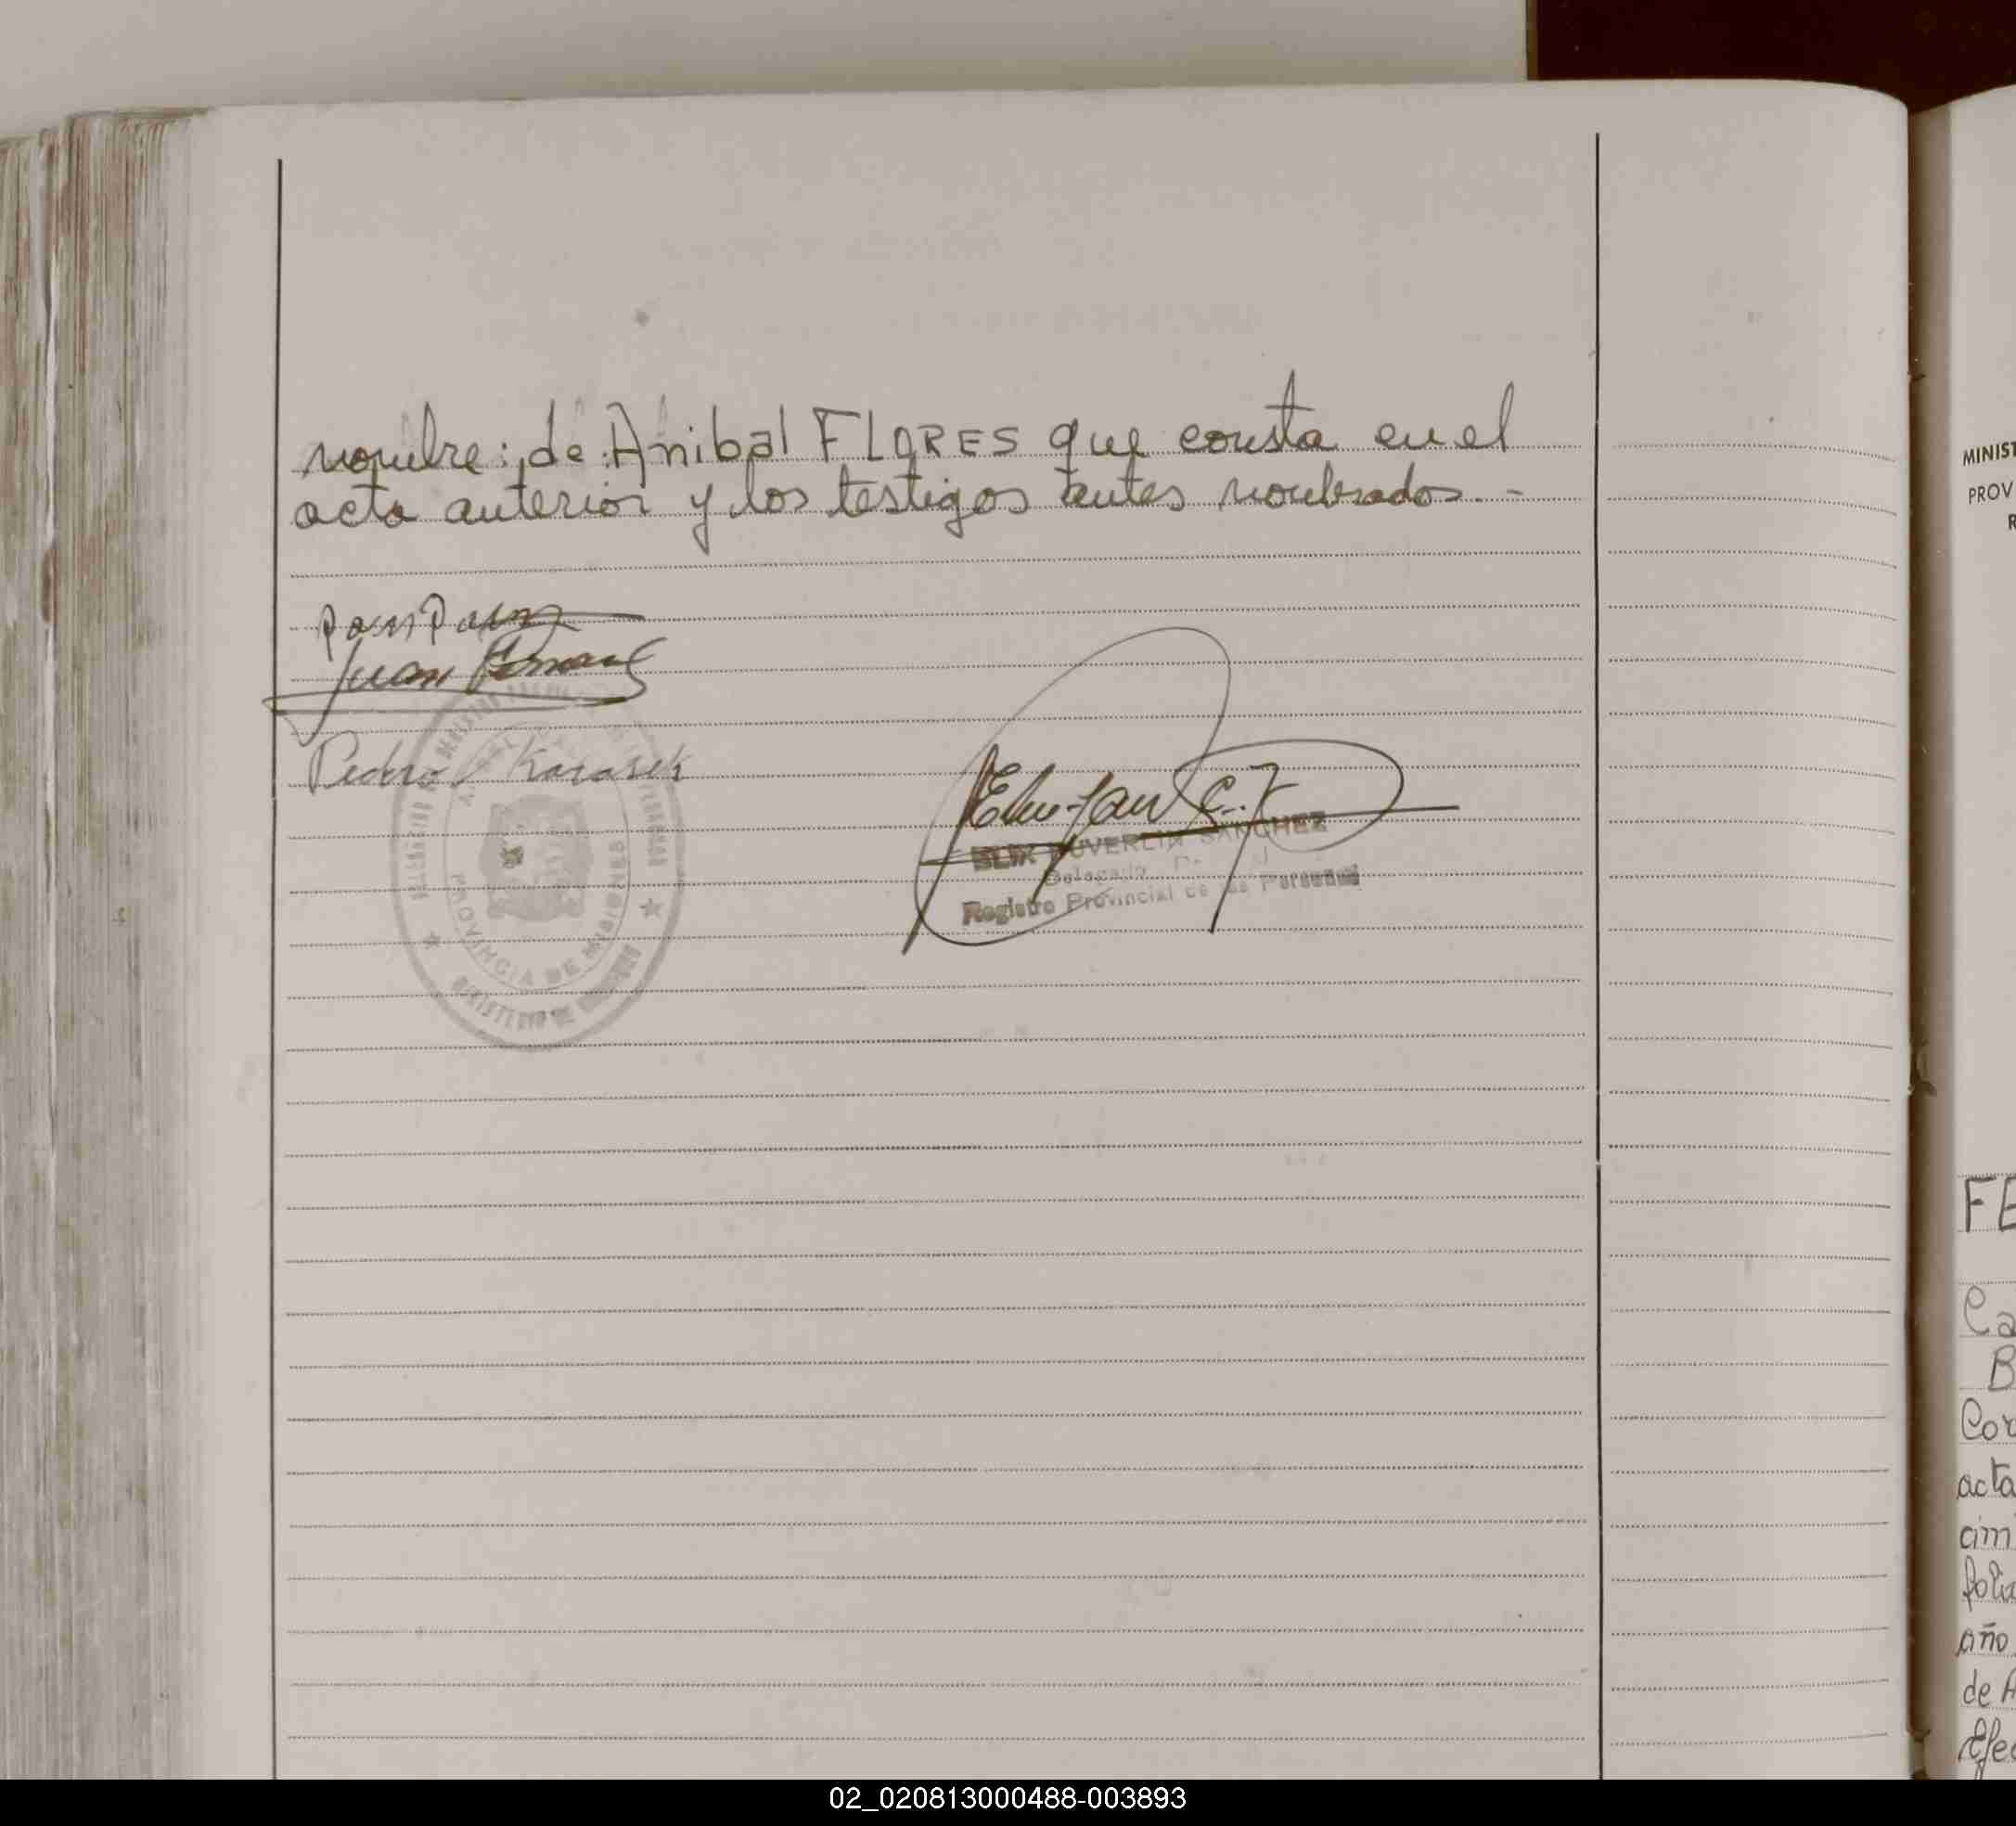 nombre: de Anibal FLORES que consta en el
acta anterior y los testigos antes nombrados. -
Juan
Pedro Karasek
PROVINCIA DE MISIONES
MINISTERIO DE GOBIERNO
DUVERLIN SANCHEZ
Delegado
Registro Provincial de las Personas
MINIST
PROV
R
FE
Ca
B
Cor
acta
cim
folio
año
de A
Efec
02_020813000488-003893